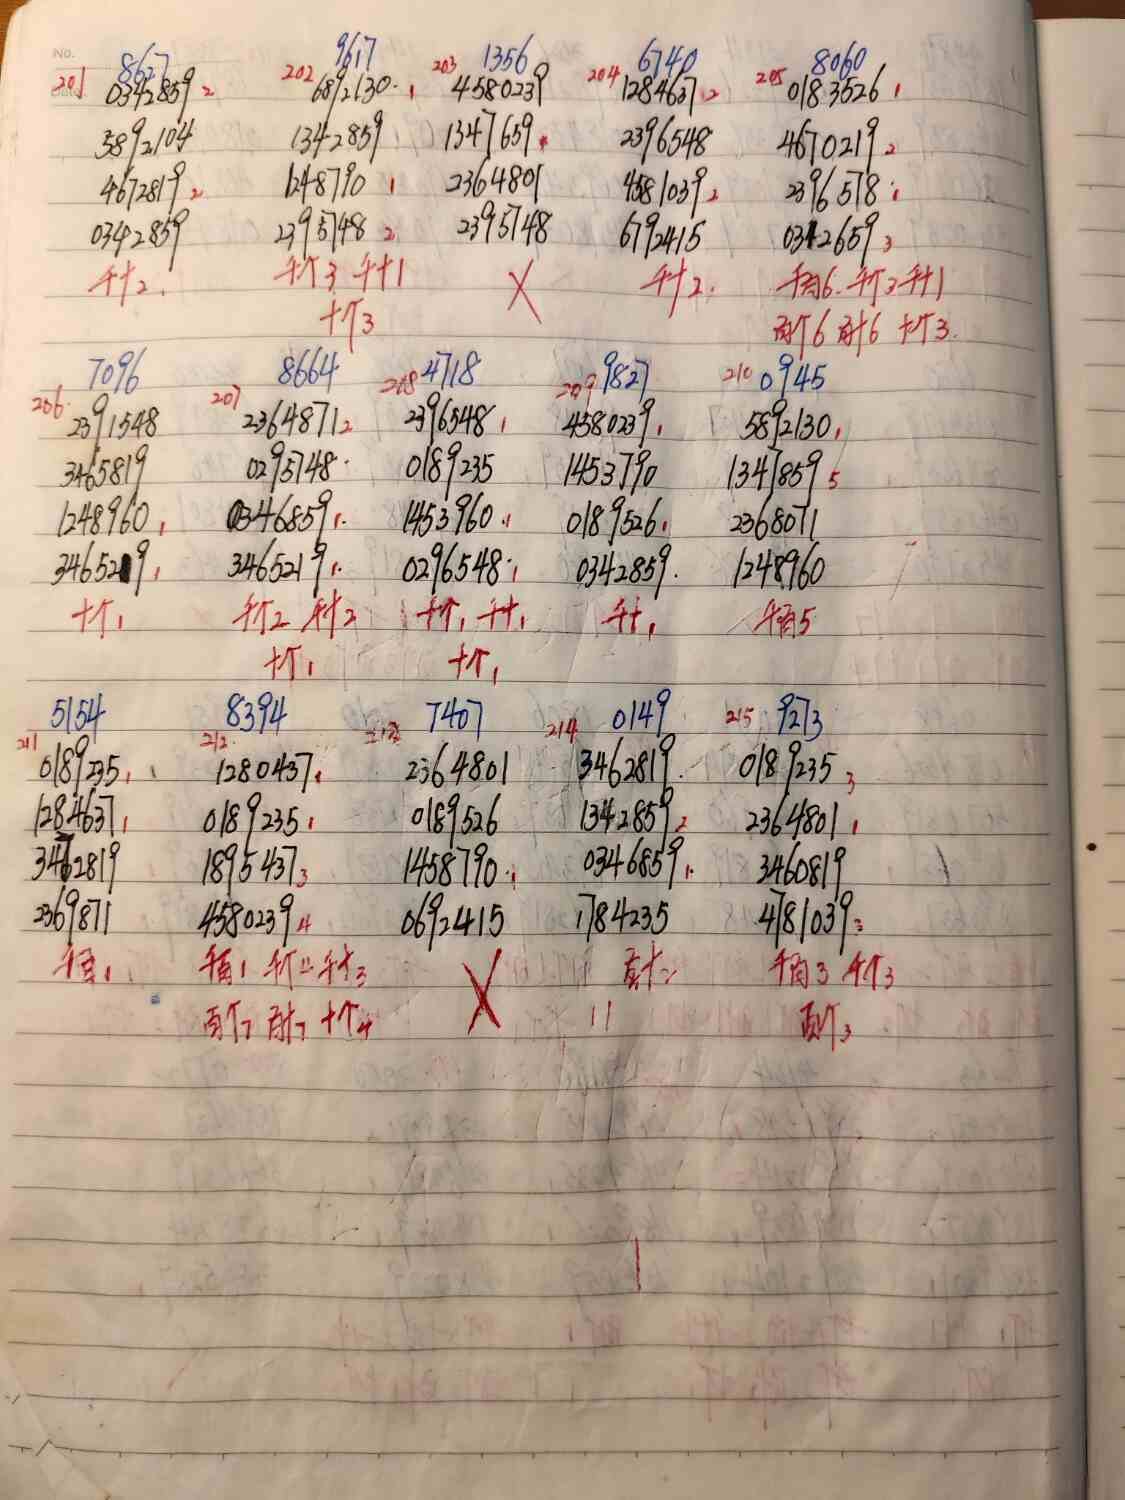 No.
8627 9617 1356 6740 8060
201 0342859 2 202 6892130 1 203 4580239 204 1284637 2 205 0183526 1
5892104 1342859 1347659 2396548 4670219 2
4672819 2 1248790 1 2364801 4581039 2 2396578 1
0342859 2395748 2 2395748 6792415 0342659 3
千十2 千个3 千十1 X 千十2 千百6 千个3 千十1
十个3 百个6 百十6 十个3
7096 8664 4718 9827 0945
206 2391548 207 2364871 2 208 2396548 1 209 4580239 1 210 5892130 1
3465819 0295748 0189235 1453790 1347859 5
1248960 1 0346859 1 1453960 1 0189526 1 2368071
3465219 1 3465219 1 0296548 1 0342859 1248960
十个1 千个2 千十2 千个1 千十1 千十1 千百5
十个1 十个1
5154 8394 7407 0149 9273
211 0189235 1 212 1280437 1 213 2364801 214 3462819 215 0189235 3
1284637 1 0189235 1 0189526 1342859 2 2364801 1
3462819 1895437 3 1458790 1 0346859 1 3460819
2369871 4580239 4 0692415 1784235 4781039 3
千百1 千百1 千个2 千十3 X 百十2 千百3 千个3
百个7 百十7 十个4 11 百个3